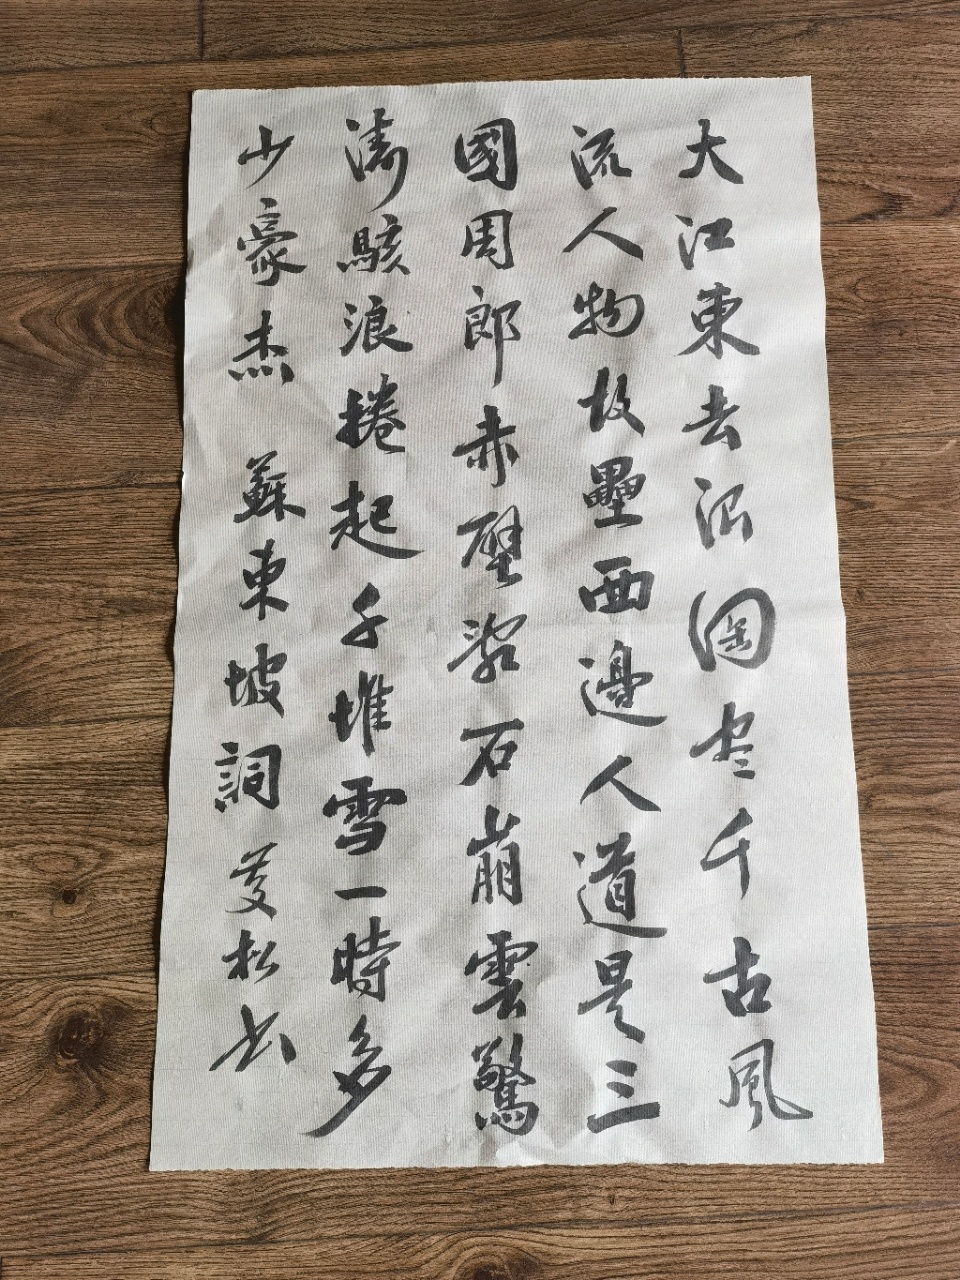 大江東去浪淘尽千古風
流人物故壘西邊人道是三
國周郎赤壁石崩雲驚
濤駭浪捲起千堆雪一時多
少豪杰 蘇東坡詞 松书